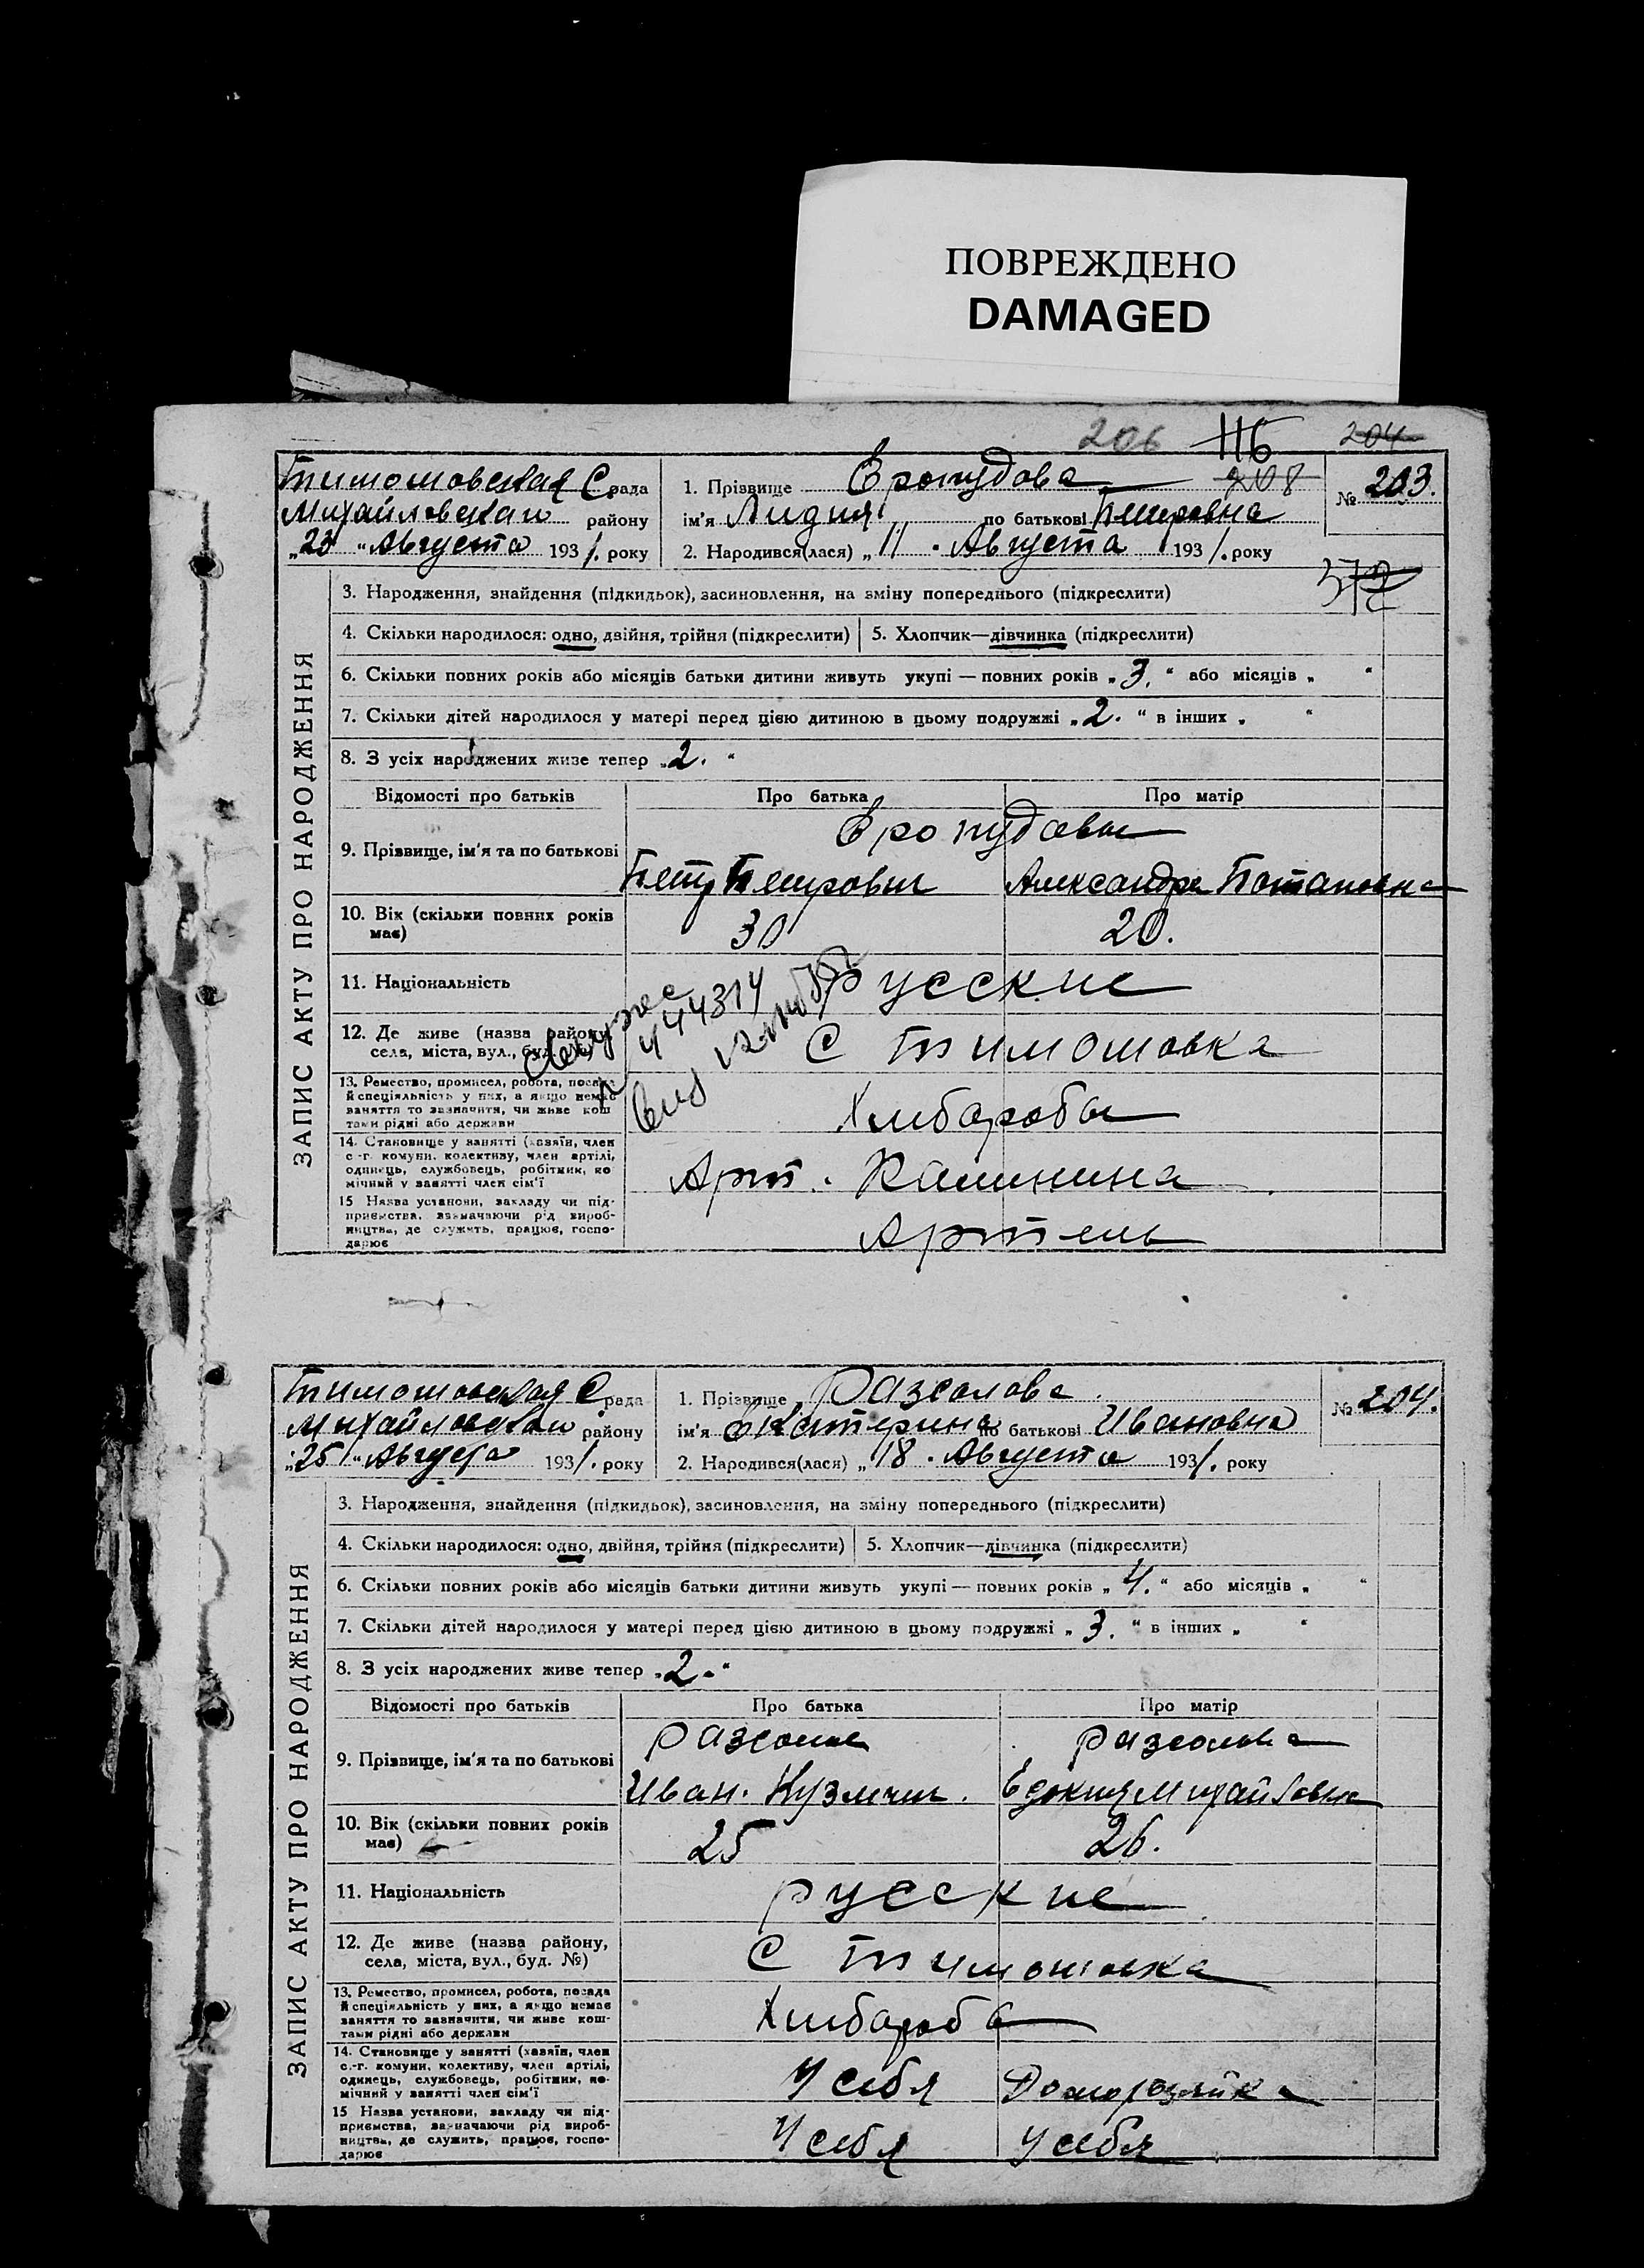 ПОВРЕЖДЕНО
DAMAGED
206 116 204
Тимошовская С рада
Михайловскаи району
„23“ Августа 1931. року
1. Прізвище Еропудова 208
ім'я Лидия по батькові Петровна
2. Народився(лася) „11. Августа 1931. року
№ 203.
372
ЗАПИС АКТУ ПРО НАРОДЖЕННЯ
3. Народження, знайдення (підкидьок), засиновлення, на зміну попереднього (підкреслити)
4. Скільки народилося: одно, двійня, трійня (підкреслити) 5. Хлопчик—дівчинка (підкреслити)
6. Скільки повних років або місяців батьки дитини живуть укупі — повних років „3.“ або місяців „ “
7. Скільки дітей народилося у матері перед цією дитиною в цьому подружжі „2.“ в інших „ “
8. З усіх народжених живе тепер „2.“
Відомості про батьків Про батька Про матір
9. Прізвище, ім'я та по батькові
Еропудовы
Петр Петровыч Александра Потаповна
10. Вік (скільки повних років має)
30 20.
11. Національність
Русские
12. Де живе (назва району, села, міста, вул., буд. №)
С Тимошовка
13. Ремество, промисел, робота, посада
й спеціяльність у них, а якщо немає
заняття то зазначити, чи живе кош
тами рідні або держави
Хлибаробы
14. Становище у занятті (хазяїн, член
с.-г. комуни, колективу, член артілі,
одинець, службовець, робітник, по
мічний у занятті член сім'ї
Арт. Калинина
15 Назва установи, закладу чи під-
приємства, зазначаючи рід вироб-
ництва, де служить, працює, госпо-
дарює
Артель
444314
Тимошовская С рада
Михайловскаи району
„25“ Августа 1931. року
1. Прізвище Разсолова
ім'я Екатерина по батькові Ивановна
2. Народився(лася) „18. Августа 1931. року
№ 204.
ЗАПИС АКТУ ПРО НАРОДЖЕННЯ
3. Народження, знайдення (підкидьок), засиновлення, на зміну попереднього (підкреслити)
4. Скільки народилося: одно, двійня, трійня (підкреслити) 5. Хлопчик—дівчинка (підкреслити)
6. Скільки повних років або місяців батьки дитини живуть укупі — повних років „4.“ або місяців „ “
7. Скільки дітей народилося у матері перед цією дитиною в цьому подружжі „3.“ в інших „ “
8. З усіх народжених живе тепер „2.“
Відомості про батьків Про батька Про матір
9. Прізвище, ім'я та по батькові
Разсолова
Иван. Кузмич. Едокия Михайловна
10. Вік (скільки повних років має)
25 26.
11. Національність
русские
12. Де живе (назва району,
села, міста, вул., буд. №)
С Тимошовка
13. Ремество, промисел, робота, посада
й спеціяльність у них, а якщо немає
заняття то зазначити, чи живе кош-
тами рідні або держави
Хлибароба
14. Становище у занятті (хазяїн, член
с.-г. комуни, колективу, член артілі,
одинець, службовець, робітник, по-
мічний у занятті член сім'ї
У себя Доморозяйка
15 Назва установи, закладу чи під-
приємства, зазначаючи рід вироб-
ництва, де служить, працює, госпо-
дарює
У себя У себя